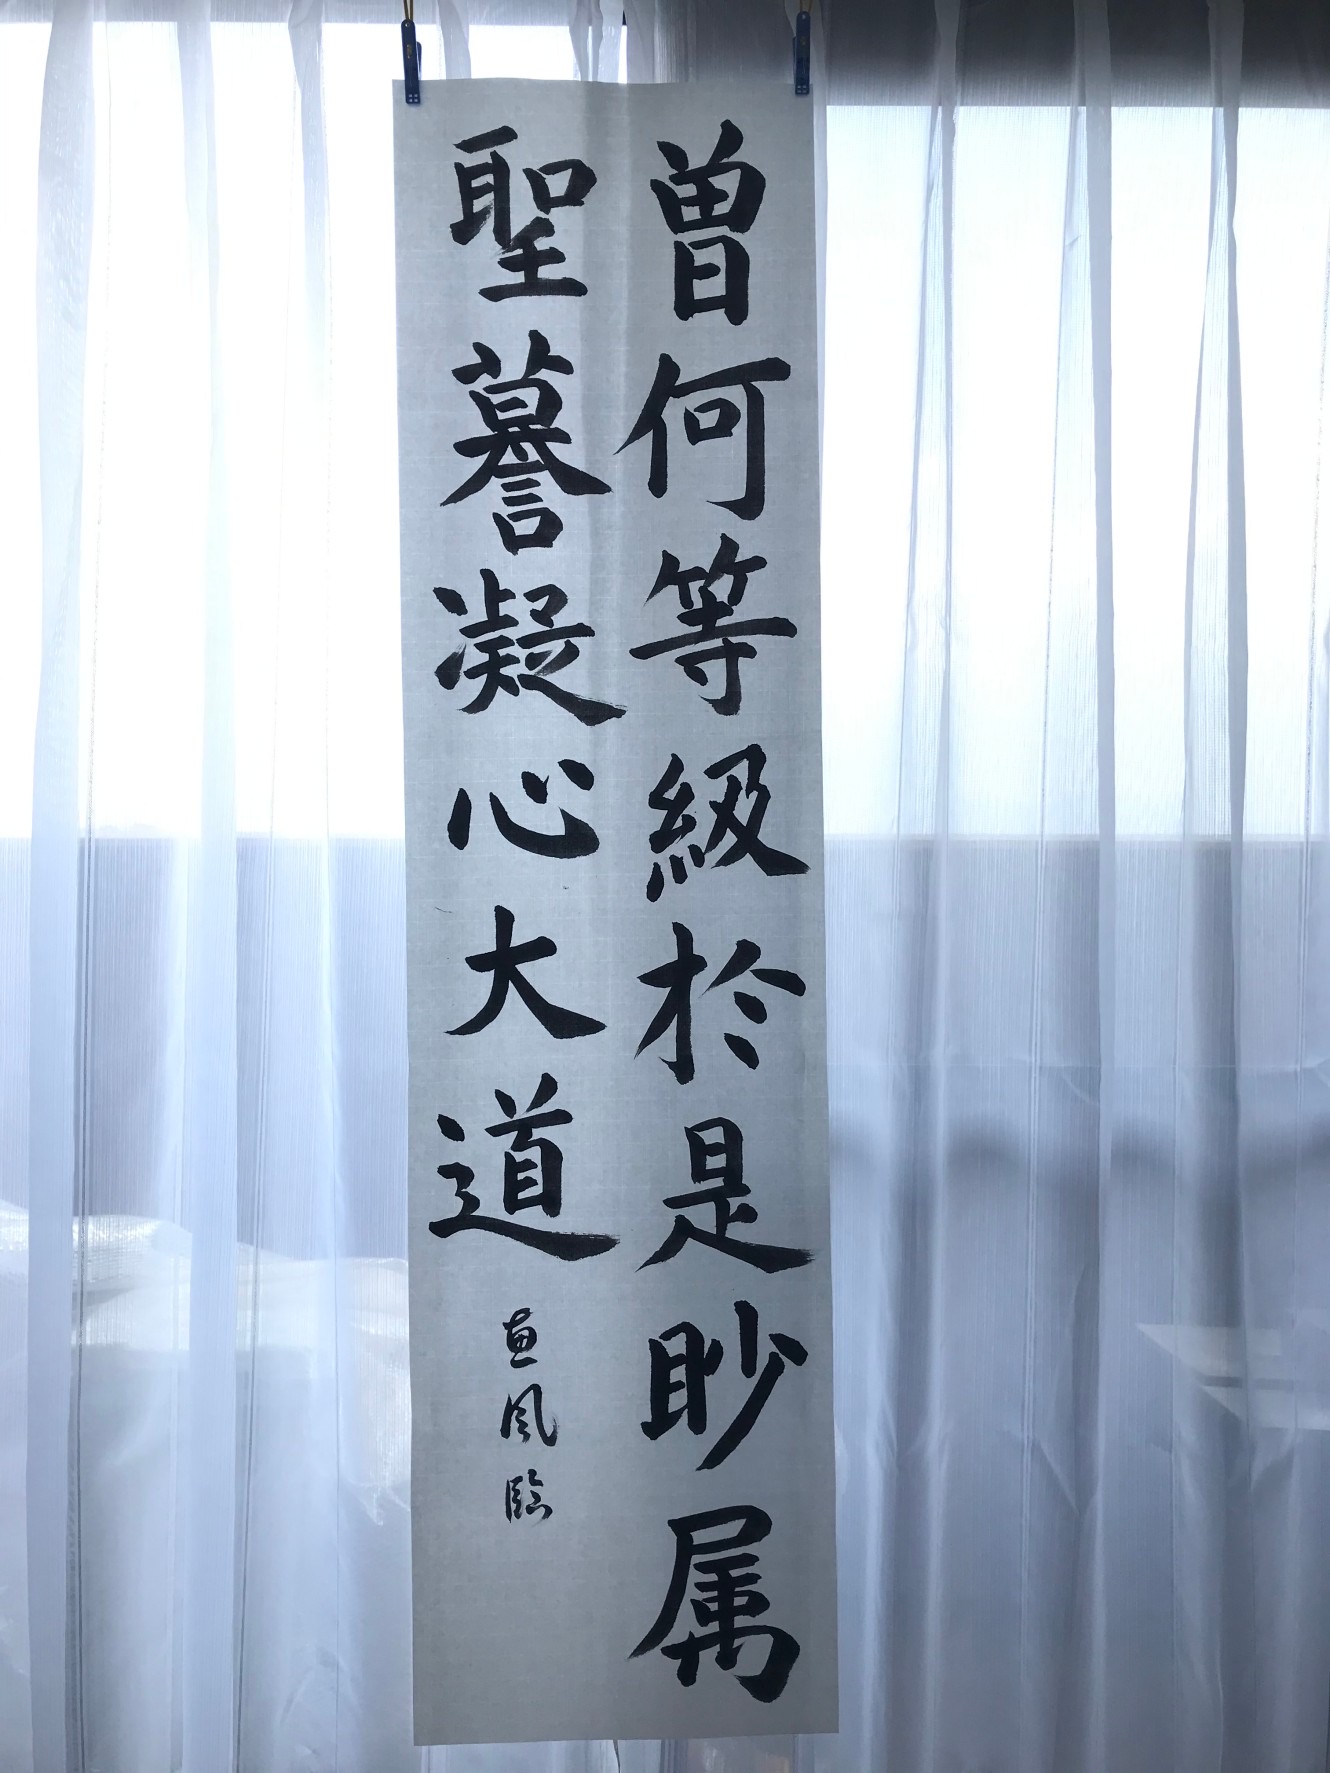 曽何等級於是眇属
聖謩凝心大道
恵風臨